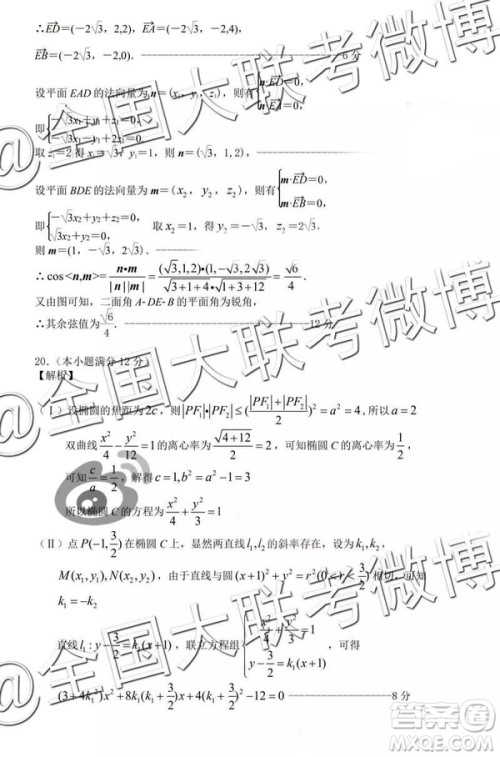 ∴ED=(−2√3, 2,2), EA=(−2√3, −2,4),
EB=(−2√3, −2,0). 6分
设平面 EAD 的法向量为 n=(x₁, y₁, z₁), 则有
即{−√3x₁+y₁+z₁=0, −√3x₁−y₁+2x₁=0
取 z₁=2得 x₁=√3, y₁=1, 则 n=(√3, 1, 2),
设平面 BDE 的法向量为 m=(x₂, y₂, z₂), 则有{m·ED=0, m·EB=0,
即{−√3x₂+y₂+z₂=0, √3x₂+y₂=0, 取 x₂=1, 得 y₂=−√3, z₂=2√3.
则 m=(1, −√3, 2√3).
∴cos<n,m>=n•m/|n||m|=(√3,1,2)•(1,−√3 2√3)/√3+1+4•√1+3+12=√6/4.
又由图可知, 二面角 A-DE-B 的平面角为锐角,
∴其余弦值为√6/4. 12分
20. (本小题满分12分)
【解析】
(Ⅰ) 设椭圆的焦距为2c, 则|PF₁|•|PF₂|≤(|PF₁|+|PF₂|/2)²=a²=4, 所以a=2
双曲线x²/4−y²/12=1的离心率为√4+12/2=2, 可知椭圆 C 的离心率为1/2,
可知c/a=1/2, 解得c=1,b²=a²−1=3
所以椭圆 C 的方程为x²/4+y²/3=1
(Ⅱ) 点P(−1,3/2)在椭圆 C 上, 显然两直线l₁,l₂的斜率存在, 设为k₁,k₂,
M(x₁,y₁),N(x₂,y₂), 由于直线与圆(x+1)²+y²=r²(0<r<3/2)相切, 可知
k₁=−k₂
直线l₁:y−3/2=k₁(x+1), 联立方程组{x²/4+y²/3=1, y−3/2=k₁(x+1), 可得
(3+4k₁²)x²+8k₁(k₁+3/2)x+4(k₁+3/2)²−12=0 8分
@全国大联考微博
@全国大联考微博
@全国大联考微博
答案圈
MXQE.COM